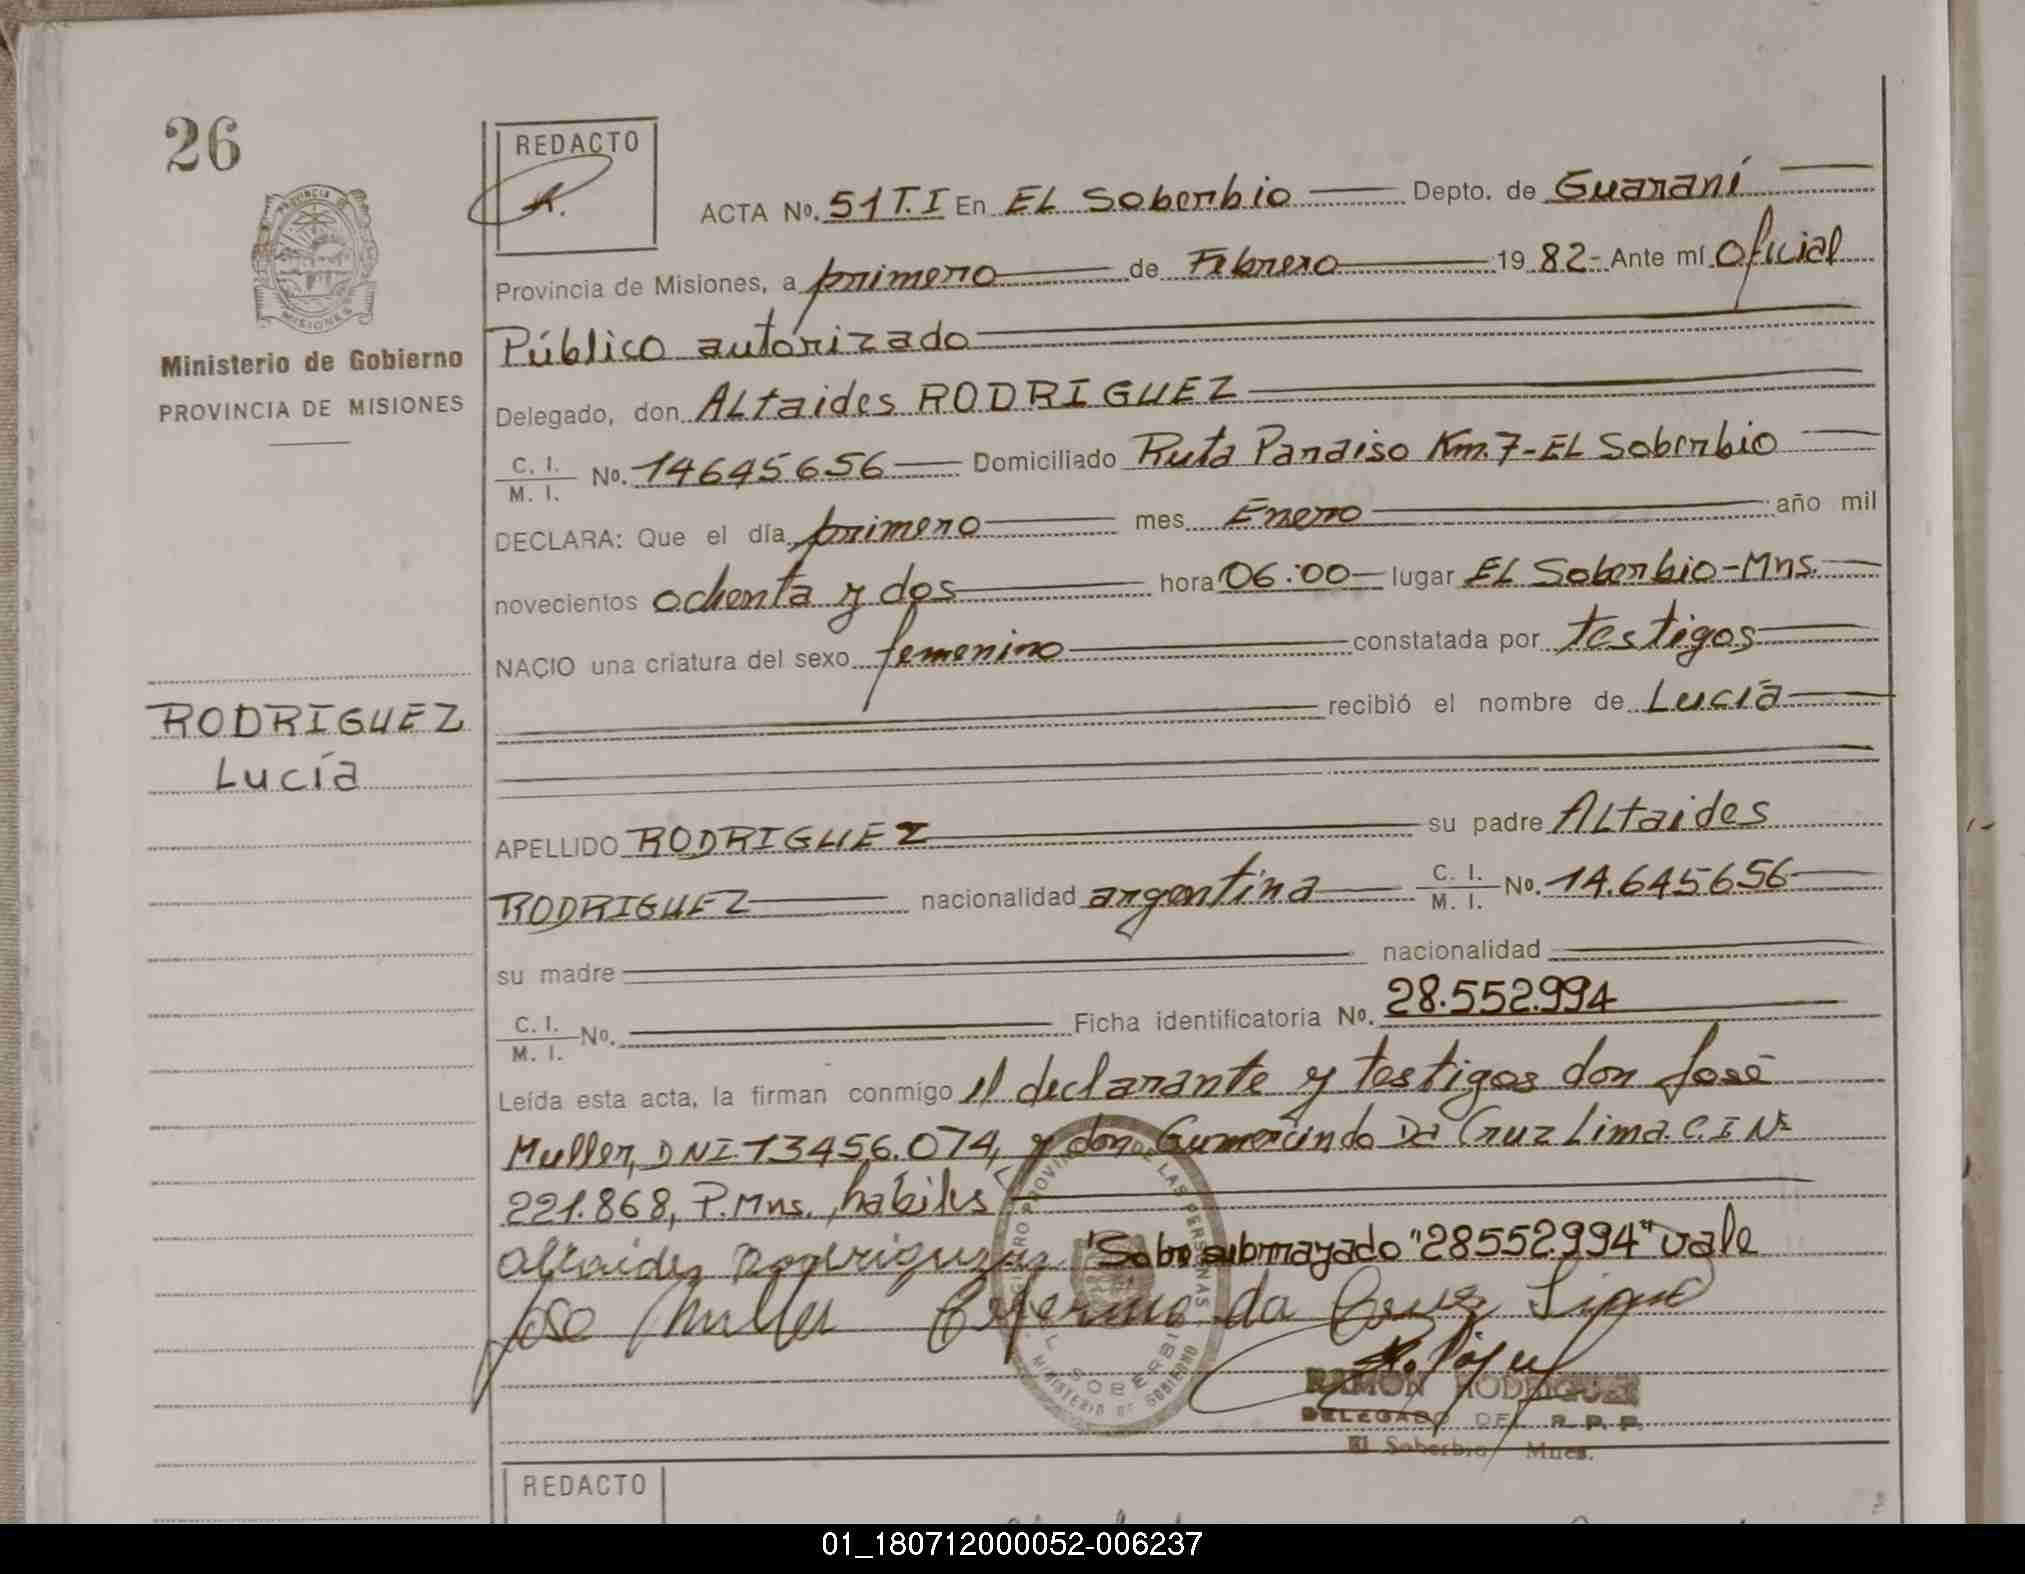 26
REDACTO
R.
ACTA No. 51 T.I En EL Soberbio Depto. de Guaraní
Provincia de Misiones, a primero de Febrero 1982- Ante mí Oficial
Público autorizado
Delegado, don Altaides RODRIGUEZ
C. I. / M. I. No. 14645656 Domiciliado Ruta Paraiso Km.7-EL Soberbio
DECLARA: Que el día primero mes Enero año mil
novecientos ochenta y dos hora 06:00 lugar EL Soberbio-Mns.
NACIO una criatura del sexo femenino constatada por testigos
recibió el nombre de Lucía
APELLIDO RODRIGUEZ su padre Altaides
RODRIGUEZ nacionalidad argentina C. I. / M. I. No. 14.645656
su madre nacionalidad
C. I. / M. I. No. Ficha identificatoria No. 28.552.994
Leída esta acta, la firman conmigo el declarante y testigos don José
Muller, DNI.13456.074, y don Gumercindo Da Cruz Lima. C.I Nº
221.868, P.Mns., habiles
Altaides Rodriguez "Sobre submayado "28552.994" vale
Jose Muller da Cruz
RAMON RODRIGUEZ
DELEGADO DEL R.P.P.
El Soberbio Mnes.
PROVINCIA DE MISIONES
Ministerio de Gobierno
PROVINCIA DE MISIONES
RODRIGUEZ
Lucía
REGISTRO PROVINCIAL DE LAS PERSONAS
EL SOBERBIO
MINISTERIO DE GOBIERNO
REDACTO
01_180712000052-006237